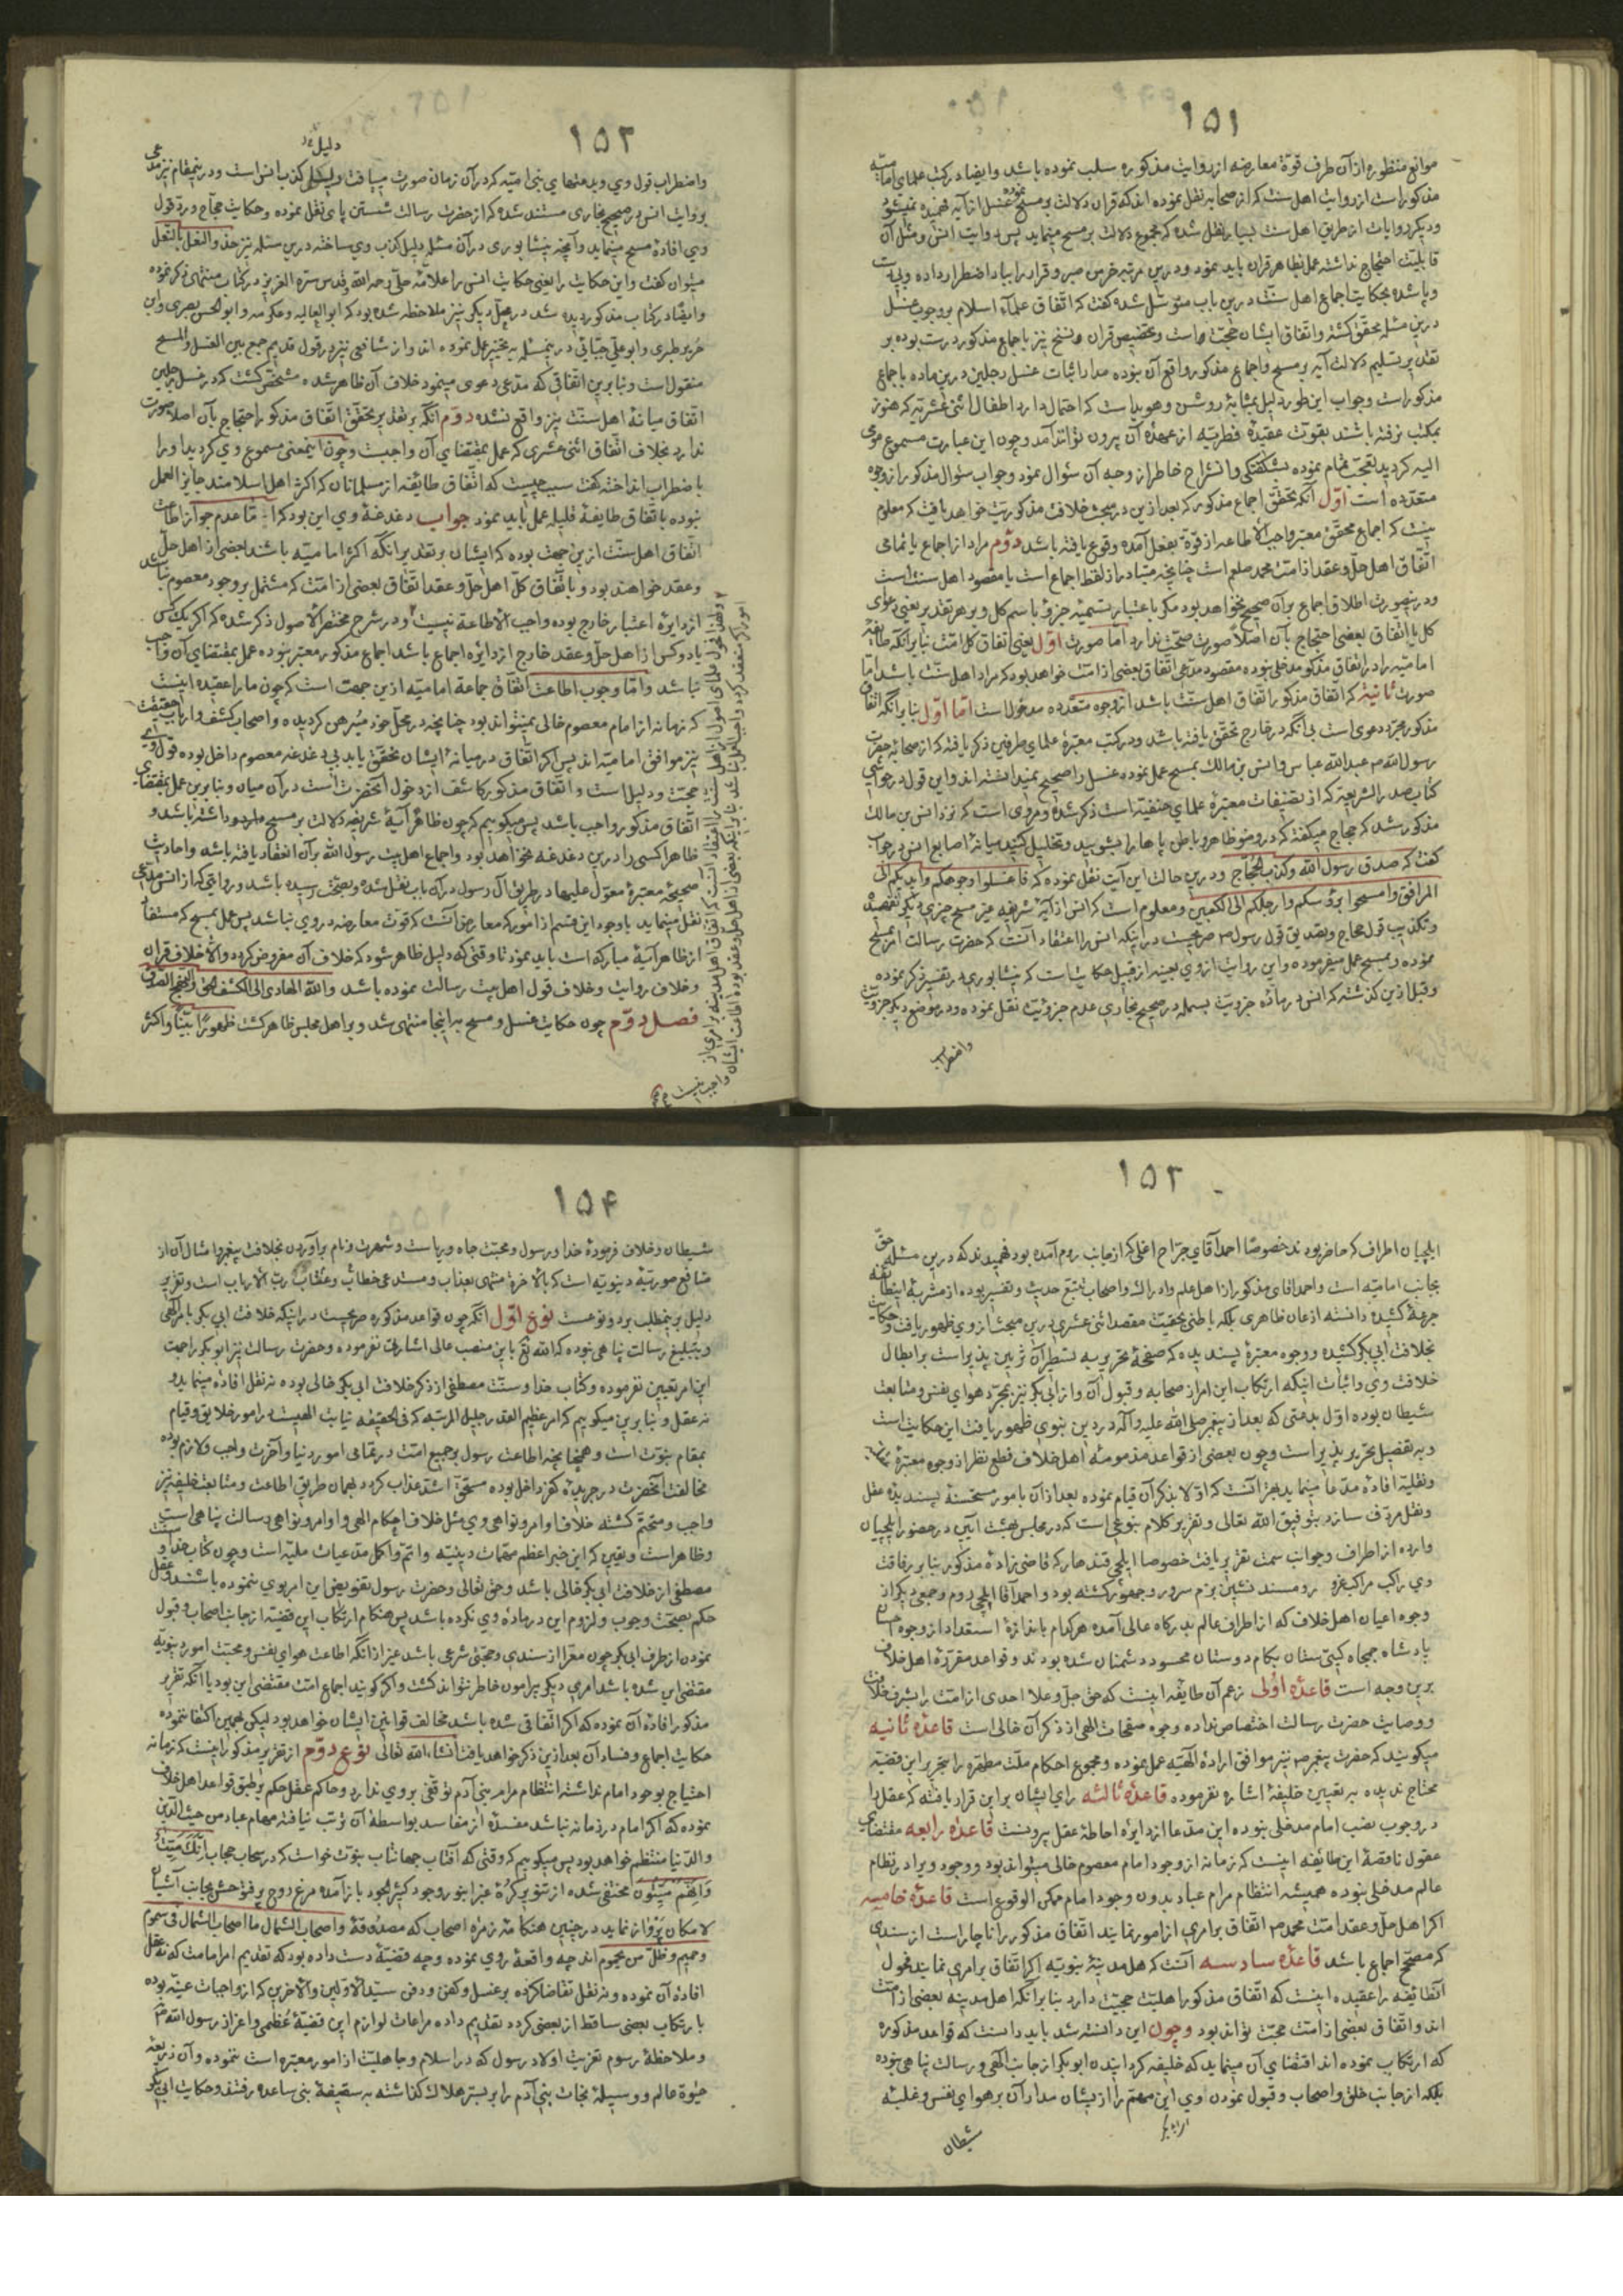 ۱۵۱
موانع منظوره از آن طرف قوّة معارضه از روایت مذکوره سلب نموده باشد و ایضا در کتب علمای امامیّه
مذکور است از روایت اهل سنت که از صحابه نقل نموده اند که قران دلالت بر مسح نموده غسل از آیه فهمیده نمیشود
و دیگر روایات از طریق اهل سنت بسیار نقل شده که مجموع دلالت بر مسح مینماید پس روایت انس و مثل آن
قابلیّت احتجاج نداشته عمل بظاهر قران باید نمود و درین مرتبه خرمن صبر و قرار را بباد اضطرار داده
و پا شده بحکایت اجماع اهل سنّت درین باب متوسّل شده گفت که اتّفاق علماء اسلام بر وجوب غسل
درین مسئله محقّق گشته و اتفاق ایشان حجّت است و تخصیص قران و نسخ نیز باجماع مذکور درست بوده بر
تقدیر تسلیم دلالت آیه بر مسح و اجماع مذکور رافع آن بوده مدار اثبات غسل رجلین درین ماده باجماع
مذکور است و جواب این طور دلیل بمثابهٔ روشن و هویداست که احتمال دارد اطفال اثنی عشریّه که هنوز
بمکتب نرفته باشند بقوّت عقیدهٔ فطریّه از عهدهٔ آن بیرون تواند آمد و چون این عبارت مسموع مومی
الیه گردید تعجّب تمام نموده بشکفتگی و انشراح خاطر از وجه آن سئوال نمود و جواب سئوال مذکور از وجوه
متعدّده است اوّل آنکه تحقّق اجماع مذکور که بعد ازین در مبحث خلافت مذکوریّت خواهد یافت که معلوم
نیست که اجماع محقّق معتبر واجب الاطاعه از قوّة بفعل آمده وقوع یافته باشد دوّم مراد از اجماع یا تمامی
اتّفاق اهل حلّ و عقد از امّت محمد صلعم است چنانچه متبادر از لفظ اجماع است یا مقصود اهل سنّت است
و درینصورت اطلاق اجماع بر آن صحیح نخواهد بود مگر باعتبار تسمیهٔ جزؤ باسم کل و بر هر تقدیر یعنی دعوای
کل یا اتّفاق بعضی احتجاج بآن اصلاً صورت صحّت ندارد امّا صورت اوّل یعنی اتّفاق کل امّت بنا بر آنکه طایفهٔ
امامیّه را در اتّفاق مذکور مدخلی نبوده مقصود مدعی اتّفاق بعضی از امّت خواهد بود که مراد اهل سنّت باشد امّا
صورت ثانیه که اتّفاق مذکور اتّفاق اهل سنّت باشد از وجوه متعدّده مدخولست امّا اوّل بنا بر آنکه اتّفاق
مذکور مجرّد دعوی است بی آنکه در خارج تحقّق یافته باشد و در کتب معتبرهٔ علمای طرفین ذکر یافته که از صحابهٔ حضرت
رسول الله ص عبدالله عباس و انس بن مالک بمسح عمل نموده غسل را صحیح نمیدانسته اند و این قول در حواشی
کتاب صدر الشریعه که از تصنیفات معتبرهٔ علمای حنفیّه است ذکر شده و مروی است که نزد انس بن مالک
مذکور شد که حجاج میگفته که در وضو ظاهر و باطن پاها را بشویید و تخلیل کنید میانهٔ اصابع انس در جواب
گفت که صدق رسول الله و کذب الحجّاج و درین حالت این آیت نقل نموده که فاغسلوا وجوهکم و ایدیکم الی
المرافق و امسحوا برؤسکم و ارجلکم الی الکعبین و معلوم است که انس از آیهٔ شریفه غیر مسح چیزی دیگر نفهمیده
و تکذیب قول حجاج و تصدیق قول رسول ص صریحست در اینکه انس را اعتقاد آنست که حضرت رسالت امر بمسح
نموده و بمسح عمل میفرموده و این روایت از وی بعینه از قبیل حکایتست که نیشابوری در تفسیر ذکر نموده
و قبل ازین گذشته که انس در بارهٔ جزویّت بسمله در صحیح بخاری عدم جزوئیّت نقل نموده و در موضع دیگر جزویّت
واضطراب
۱۵۲
واضطراب قول وی و بدعتهای بنی امیّه که در آن زمان صورت مییافت دلیل کذب انس است و درینمقام نیز مدعی
بروایت انس در صحیح بخاری مستند شده که از حضرت رسالت شستن پای نقل نموده و حکایت حجّاج و ردّ قول
وی افادهٔ مسح مینماید و آنچه نیشابوری در آن مسئله دلیل کذب وی ساخته درین مسئله نیز حذو النعل بالنعل
میتوان گفت و این حکایت را یعنی حکایت انس را علاّمهٔ حلّی رحمه الله و قدس سرّه العزیز در کتاب منتهای ذکر نموده
و ایضا در کتاب مذکور دیده شد در محلّ دیگر نیز ملاحظه شده بود که ابوالعالیه و عکرمه و ابوالحسن بصری و ابن
جریر طبری و ابو علی جبّایی درینمسئله به تخییر عمل نموده اند و از شافعی نیز در قول قدیم جمع بین الغسل و المسح
منقول است و بنابرین اتّفاقی که مدّعی دعوی مینمود خلاف آن ظاهر شده مشخّص گشت که در غسل رجلین
اتّفاق میانهٔ اهل سنّت نیز واقع نشده دوّم آنکه بر تقدیر تحقّق اتّفاق مذکور احتجاج بآن اصلا صورت
ندارد بخلاف اتّفاق اثنی عشری که عمل بمقتضای آن واجبست و چون اینمعنی مسموع وی گردید او را
باضطراب انداخته گفت سبب چیست که اتّفاق طایفه از مسلمانان که اکثر اهل اسلامند جایز العمل
نبوده باتّفاق طایفهٔ قلیله عمل باید نمود جواب دغدغهٔ وی این بود که امّا عدم جواز اطاعت
اتّفاق اهل سنّت ازین جهت بوده که ایشان بر تقدیر آنکه اکثر امامیّه باشند بعضی از اهل حلّ
و عقد خواهند بود و باتّفاق کلّ اهل حلّ و عقد اتّفاق بعضی از امّت که مشتمل بر وجود معصوم نباشد
از دایرهٔ اعتبار خارج بوده واجب الاطاعة نیست و در شرح مختصر الاصول ذکر شده که اگر یک کس
یا دو کس از اهل حلّ و عقد خارج از دایره اجماع باشد اجماع مذکور معتبر نبوده عمل بمقتضای آن واجب
نباشد و امّا وجوب اطاعت اتّفاق جماعة امامیّه ازین جهت است که چون ما را عقیده اینست
که زمانه از امام معصوم خالی نمیتواند بود چنانچه در محلّ خود مبرهن گردیده و اصحاب کشف و ارباب حقیقت
نیز موافق امامیّه اند پس اگر اتّفاق در میانهٔ ایشان تحقّق یابد بی دغدغه معصوم داخل بوده قول وی
حجّت و دلیل است و اتّفاق مذکور کاشف از دخول آنحضرت است در آن میان و بنابرین عمل بمقتضای
اتّفاق مذکور واجب باشد پس میگوییم که چون ظاهر آیهٔ شریفه دلالت بر مسح داشته باشد و
ظاهرا کسی را درین دغدغه نخواهد بود و اجماع اهل بیت رسول الله بر آن انعقاد یافته باشد و احادیث
صحیحه معتبرهٔ معوّل علیها در طریق آل رسول در آن باب نقل شده و بصحّت رسیده باشد و روایتی که از انس مدّعی
نقل مینماید با وجود این قسم از امور که معارض آنست که قوّت معارضه در وی نباشد پس عمل بمسح که مستفاد
از ظاهر آیهٔ مبارکه است باید نمود تا وقتی که دلیل ظاهر شود که خلاف آن مفروض گردد و الا خلاف قران
و خلاف روایت و خلاف قول اهل بیت رسالت نموده باشد والله الهادی الی الکشف الحق و النهج الصدق
فصل دوّم چون حکایت غسل و مسح به اینجا منتهی شد و بر اهل مجلس ظاهر گشت ظهورًا بیّنًا و اکثر
۱۵۳
ایلچیان اطراف که حاضر بودند خصوصا احمد آقای جرّاح اغلی که از جانب روم آمده بود فهمیدند که درین مسئله حقّ
بجانب امامیّه است و احمد اقای مذکور از اهل علم و ادراک و اصحاب تتبع حدیث و تفسیر بوده از مشربهٔ این طایفه
جرعهٔ کشیده دانسته اذعان ظاهری بلکه باطنی بحقیّت مقصد اثنی عشری درین مبحث از وی ظهور یافت و حکایت
بخلافت ابی بکر کشیده و وجوه معتبرهٔ پسندیده که صفحهٔ تحریر به تسطیر آن تزیین پذیر است بر ابطال
خلافت وی و اثبات اینکه ارتکاب این امر از صحابه و قبول آن و از ابی بکر نیز بمجرّد هوای نفس و متابعت
شیطان بوده اوّل بدعتی که بعد از پیغمبر صلی الله علیه و آله در دین نبوی ظهور یافت این حکایت است
و به تفصیل تحریر پذیر است و چون بعضی از قواعد مذمومهٔ اهل خلاف قطع نظر از وجوه معتبرهٔ
و نقلیّه افادهٔ مدّعا مینماید بهتر آنست که اوّلا بذکر آن قیام نموده بعد از آن بامور مستحسنهٔ پسندیدهٔ عقل
و نقل مردّف سازد بتوفیق الله تعالی و تقریر کلام بنوعی است که در مجلس بهشت آیین در حضور ایلچیان
وارده از اطراف و جوانب سمت تقریر یافت خصوصا ایلچی قندهار که قاضی زادهٔ مذکور بنا بر رفاقت
وی راکب مراکب غزو رو مسند نشین بزم سرور و جمهور گشته بود و احمد آقا ایلچی روم و جمعی دیگر از
وجوه اعیان اهل خلاف که از اطراف عالم بدرگاه عالی آمده هر کدام باندازهٔ استعداد از وجوه احسان
پادشاه جمجاه گیتی ستان بکام دوستان محسود دشمنان شده بودند و قواعد مقرّرهٔ اهل خلاف
برین وجه است قاعدهٔ اولی زعم آن طایفه اینست که حق جلّ و علا احدی از امّت را بشرف خلافت
و وصایت حضرت رسالت اختصاص نداده وجوه صفحات الهی از ذکر آن خالی است قاعدهٔ ثانیه
میگویند که حضرت پیغمبر ص نیز موافق ارادهٔ الهیّه عمل نموده و مجموع احکام ملّت مطهّره را بتحریر این قضیّه
محتاج ندیده به تعیین خلیفهٔ اشاره نفرموده قاعدهٔ ثالثه رای ایشان بر این قرار یافته که عقل را
در وجوب نصب امام مدخلی نبوده این مدّعا از دایرهٔ احاطهٔ عقل بیرونست قاعدهٔ رابعه مقتضای
عقول ناقصهٔ این طایفه اینست که زمانه از وجود امام معصوم خالی میتواند بود و وجود ویرا در نظام
عالم مدخلی نبوده همیشه انتظام مرام عباد بدون وجود امام ممکن الوقوع است قاعدهٔ خامسه
اگر اهل حلّ و عقد امّت محمد ص اتّفاق بر امری از امور نمایند اتّفاق مذکور را ناچار است از سندی
که مصحّح اجماع باشد قاعدهٔ سادسه آنست که اهل مدینهٔ نبویّه اگر اتّفاق بر امری نمایند فحول
آنطایفه را عقیده اینست که اتّفاق مذکور را اهلیّت حجیّت دارد بنا بر آنکه اهل مدینه بعضی از امّت
اند و اتّفاق بعضی از امّت حجّت نتواند بود و چون این دانسته شد باید دانست که قواعد مذکوره
که ارتکاب نموده اند اقتضای آن مینماید که خلیفه گردانیدن ابوبکر از جانب الهی و رسالت پناهی نبوده
بلکه از جانب خلق و اصحاب و قبول نمودن وی این مهم را از ایشان مدار آن بر هوای نفس و غلبهٔ
شیطان
۱۵۴
شیطان و خلاف فرمودهٔ خدا و رسول و محبّت جاه و ریاست و شهرت و نام برآوردن بخلافت پیغمبر و امثال آن از
منافع صوریّهٔ دنیویّه است که بالاخرة منتهی بعذاب و مستدعی خطاب و عقاب ربّ الارباب است و تقریر
دلیل برینمطلب بر دو نوعست نوع اوّل آنکه چون قواعد مذکوره صریحست در اینکه خلافت ابی بکر بامر الهی
و بتبلیغ رسالت پناهی نبوده که الله تع باین منصب عالی اشارتی نفرموده و حضرت رسالت نیز ابوبکر را جهت
این امر تعیین نفرموده و کتاب خدا و سنّت مصطفی از ذکر خلافت ابی بکر خالی بوده نه نقل افاده مینماید و
نه عقل و بنابرین میگوییم که امر عظیم القدر جلیل المرتبه که فی الحقیقه نیابت الهیست در امور خلایق و قیام
بمقام نبوّت است و همچنانچه اطاعت رسول بر جمیع امّت در تمامی امور دنیا و آخرت واجب و لازم بوده
مخالفت آنحضرت در جریدهٔ کفر داخل بوده مستحقّ اشد عذاب گردد بهمان طریق اطاعت و متابعت خلیفه نیز
واجب و متحتّم گشته خلاف اوامر و نواهی وی مثل خلاف احکام الهی و اوامر و نواهی رسالت پناهی است
و ظاهر است و یقین که این خبر اعظم مهمّات دینیّه و اتمّ و اکمل مدّعیات ملیّه است و چون کتاب خدا و سنّت
مصطفی از خلافت ابی بکر خالی باشد و حق تعالی و حضرت رسول تفویض این امر بوی ننموده باشند و عقل
حکم بصحّت وجوب و لزوم این در مادهٔ وی نکرده باشد پس هنگام ارتکاب این قضیّه از جانب اصحاب و قبول
نمودن از طرف ابی بکر چون معرّا از سندی و حجّتی شرعی باشد غیر از آنکه اطاعت هوای نفس و محبّت امور دنیویّه
مقتضی این شده باشد امری دیگر پیرامون خاطر نتواند گشت و اگر گویند اجماع امّت مقتضی این بود یا آنکه تقریر
مذکور افادهٔ آن نموده که اگر اتّفاقی شده باشد مخالف قوانین ایشان خواهد بود لیکن بهمین اکتفا ننموده
حکایت اجماع و فساد آن بعد ازین ذکر خواهد یافت انشاء الله تعالی نوع دوّم از تقریر مذکور اینست که زمانه
احتیاج بوجود امام نداشته انتظام مرام بنی آدم توقّفی بر وی ندارد و حاکم عقل حکم بر طبق قواعد اهل خلاف
نموده که اگر امام در زمانه نباشد مفسدهٔ از مفاسد بواسطهٔ آن ترتّب نیافته مهام عباد من حیث الدین
والدنیا منتظم خواهد بود پس میگوییم که وقتی که آفتاب جهانتاب نبوّت خواست که در سحاب حجاب اِنَّکَ مَیِّتٌ
وَاِنَّهُم مَیِّتُون مختفی شده از تنویر کرهٔ غبرا بنور وجود کثیر الجود باز آمده مرغ روح پر فتوحش بجانب آشیان
لا مکان پرواز نماید در چنین هنگامه زمرهٔ اصحاب که مصدوقهٔ واصحاب الشمال ما اصحاب الشمال فی سموم
و حمیم و ظلّ من یحموم اند چه واقعهٔ روی نموده و چه قضیّهٔ دست داده بود که تقدیم امر امامت که نه عقل
افادهٔ آن نموده و نه نقل تقاضا کرده بر غسل و کفن و دفن سیّد الاوّلین و الاخرین که از واجبات عینیّه بوده
با رتکاب بعضی ساقط از بعضی گردد تقدیم داده مراعات لوازم این قضیّهٔ عُظمی و اعزاز رسول الله ص
و ملاحظهٔ رسوم تعزیت اولاد رسول که در اسلام و جاهلیّت از امور معتبره است ننموده و آن ذریعهٔ
حیٰوة عالم و وسیلهٔ نجات بنی آدم را بر بستر هلاک گذاشته به سقیفهٔ بنی ساعده رفتند و حکایت ابی بکر